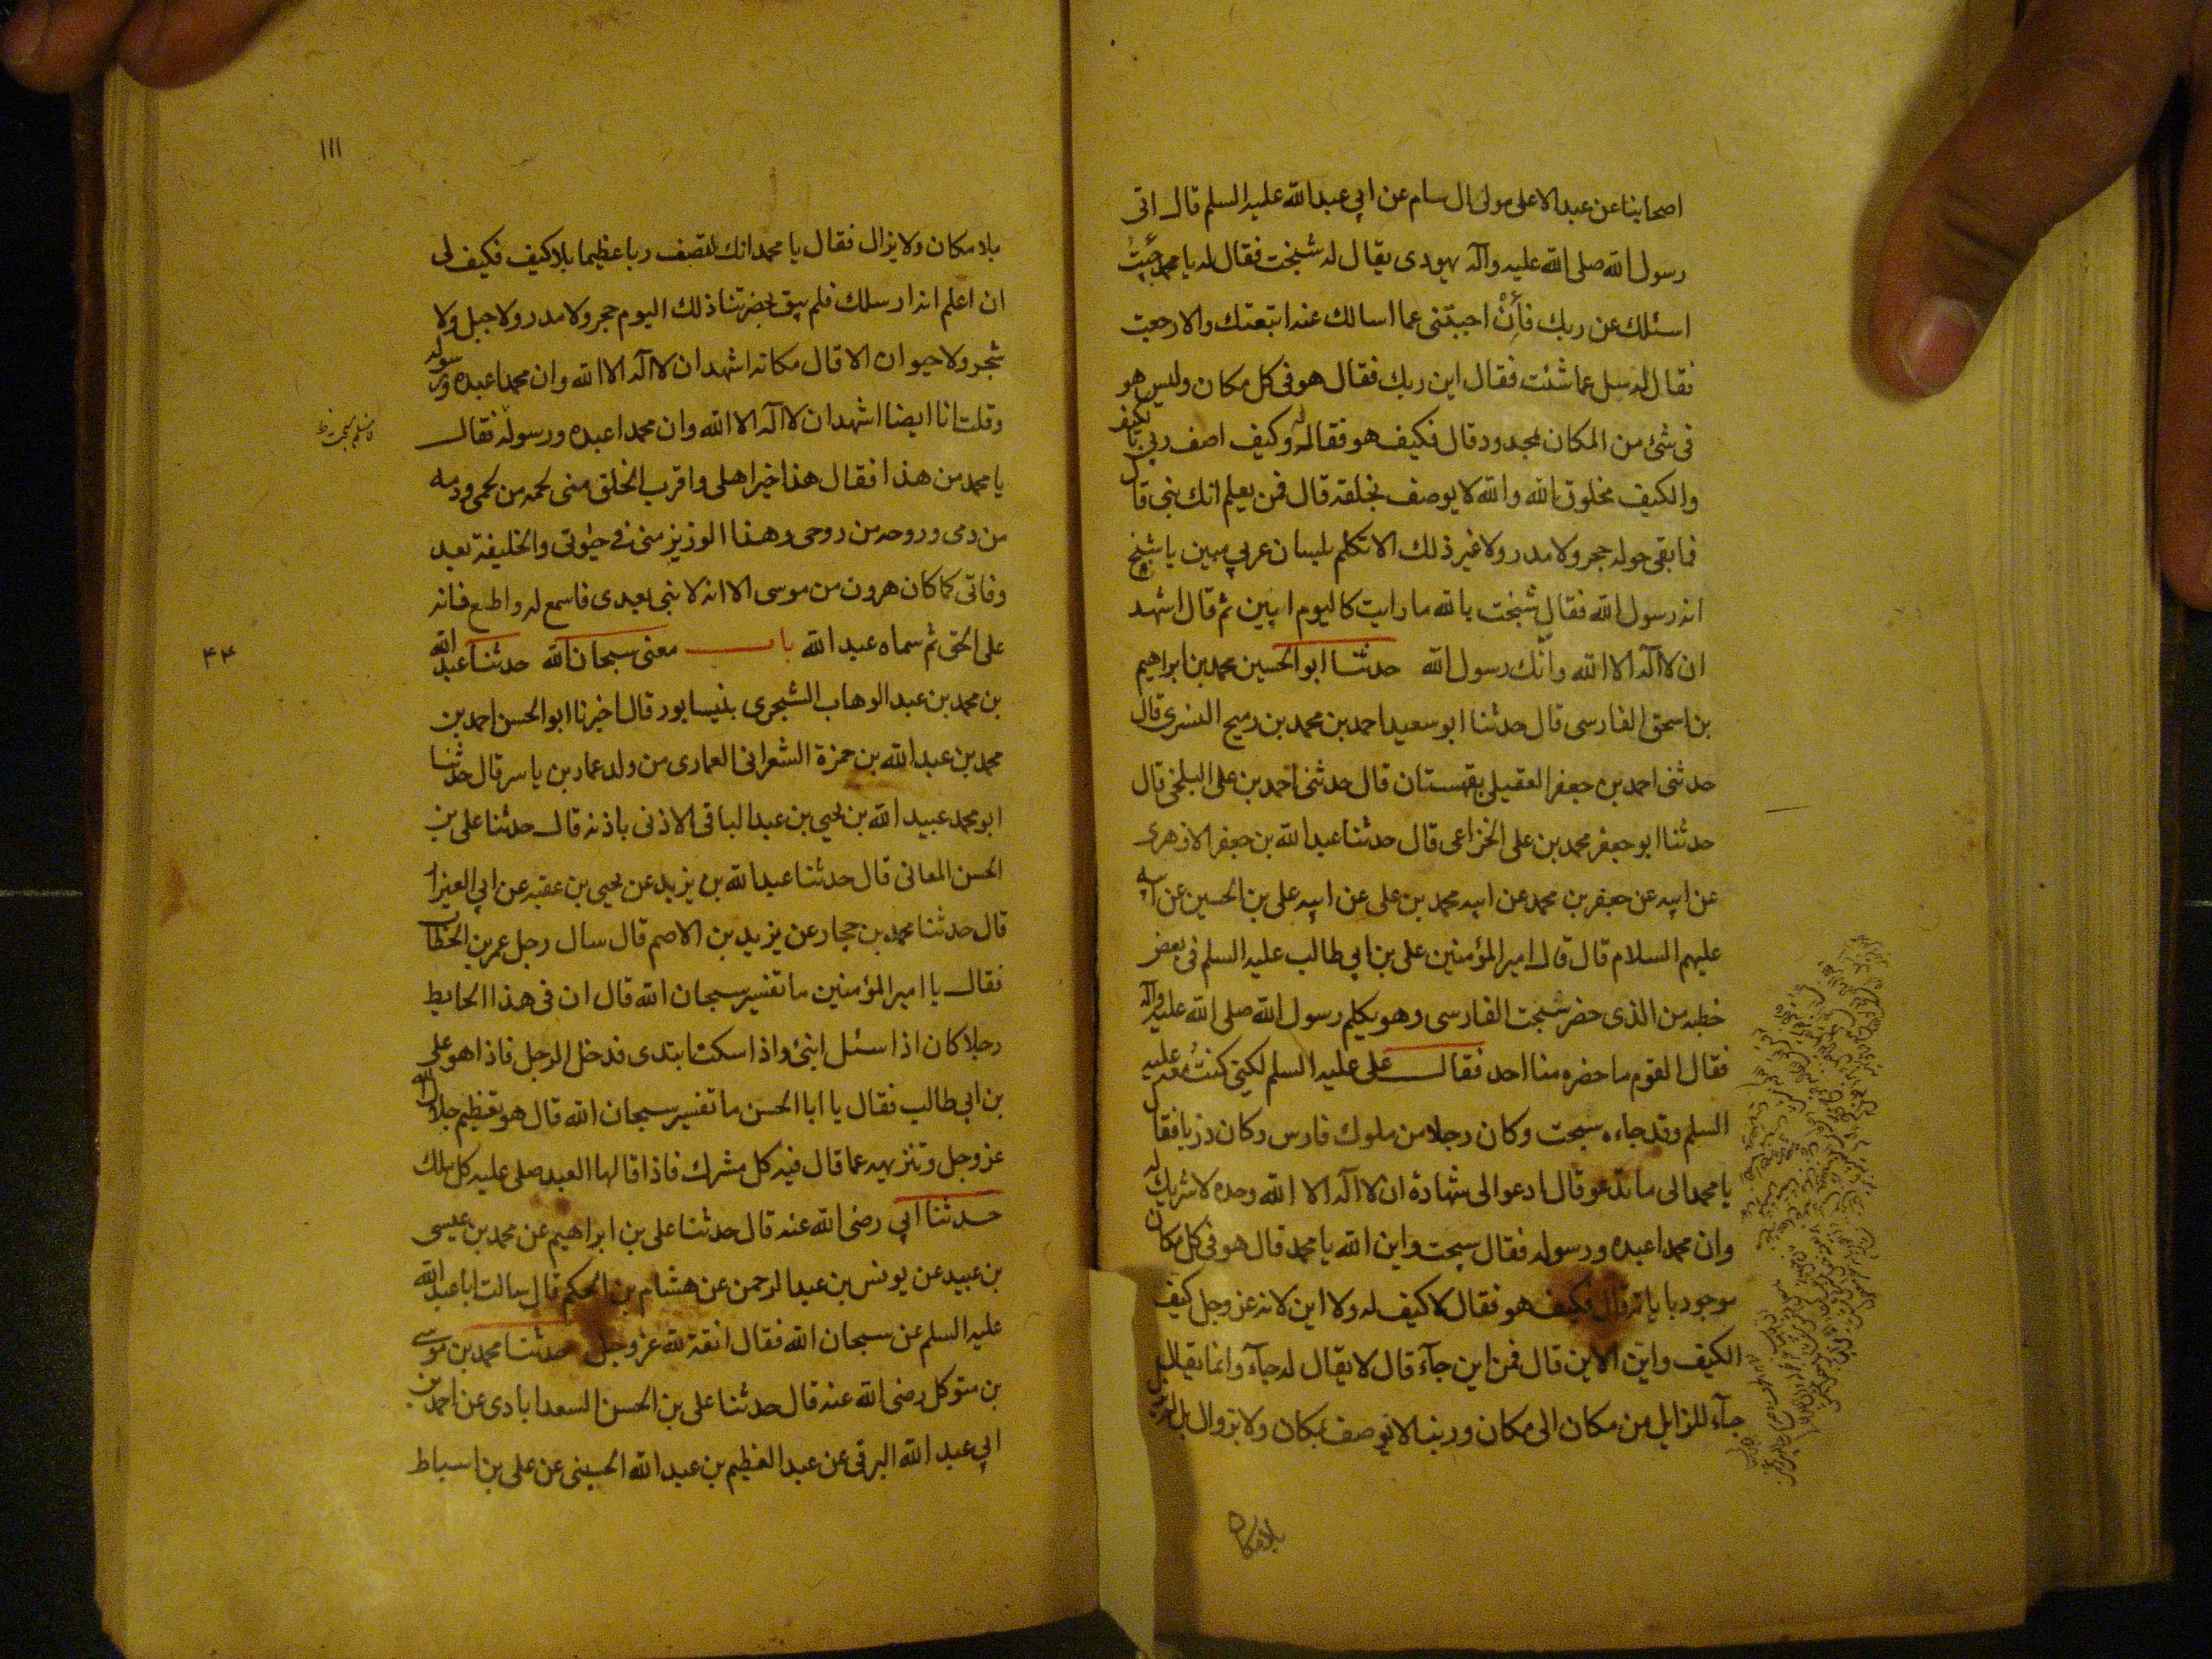 اصحابنا عن عبد الاعلى مولى ال سام عن ابي عبد الله عليه السلم قال اتى
رسول الله صلى الله عليه وآله يهودى يقال له شبخت فقال له يا محمد جئت
اسئلك عن ربك فأن اجبتنى عما اسالك عنه اتبعتك والا رجعت
فقال له سل عما شئت فقال اين ربك فقال هو فى كل مكان وليس هو
فى شئ من المكان بمحدود قال فكيف هو فقال له وكيف اصف ربي بالكيف
والكيف مخلوق الله والله لا يوصف بخلقه قال فمن يعلم انك نبى قال
فما بقى حوله حجر ولا مدر ولا غير ذلك الا تكلم بلسان عربي مبين يا شبخ
انه رسول الله فقال شبخت بالله ما رايت كاليوم ابين ثم قال اشهد
ان لا اله الا الله وانك رسول الله حدثنا ابو الحسين محمد بن ابراهيم
بن اسحق الفارسى قال حدثنا ابو سعيد احمد بن محمد بن رميح النسرى قال
حدثنى احمد بن جعفر العقيلى بقهستان قال حدثنى احمد بن على البلخى قال
حدثنا ابو جعفر محمد بن على الخزاعى قال حدثنا عبد الله بن جعفر الازهرى
عن ابيه عن جعفر بن محمد عن ابيه محمد بن على عن ابيه على بن الحسين عن ابيه
عليهم السلام قال قال امير المؤمنين على بن ابي طالب عليه السلم فى بعض
خطبه من الذى حضر شبجت الفارسى وهو يكلم رسول الله صلى الله عليه وآله
فقال القوم ما حضره منا احد فقال على عليه السلم لكنى كنت معه عليه
السلم وقد جاءه سبحت وكان رجلا من ملوك فارس وكان ذربا فقال
يا محمد الى ما تدعو قال ادعو الى شهادة ان لا اله الا الله وحده لا شريك له
وان محمدا عبده ورسوله فقال سبحت واين الله يا محمد قال هو فى كل مكان
موجود باياته قال فكيف هو فقال لا كيف له ولا اين لانه عز وجل كيف
الكيف واين الاين قال فمن اين جآء قال لا يقال له جآء وانما يقال
جآء للزايل من مكان الى مكان وربنا لا يوصف بمكان ولا بزوال بل لم يزل
بلا مكان
١١١
بلا مكان ولا يزال فقال يا محمد انك لتصف ربا عظيما بلا كيف فكيف لى
ان اعلم انه ارسلك فلم يبق بحضرتنا ذلك اليوم حجر ولا مدر ولا جبل ولا
شجر ولا حيوان الا قال مكانه اشهد ان لا اله الا الله وان محمدا عبده ورسوله
وقلت انا ايضا اشهد ان لا اله الا الله وان محمدا عبده ورسوله فقال
يا محمد من هذا فقال هذا خير اهلى واقرب الخلق منى لحمه من لحمى ودمه
من دمى وروحه من روحى وهذا الوزير منى فى حيوتى والخليفة بعد
وفاتى كما كان هرون من موسى الا انه لا نبى بعدى فاسمع له واطع فانه
على الحق ثم سماه عبد الله باب معنى سبحان الله حدثنا عبد الله
بن محمد بن عبد الوهاب الشجرى بنيسابور قال اخبرنا ابو الحسن احمد بن
محمد بن عبد الله بن حمزة الشعرانى العمارى من ولد عمار بن ياسر قال حدثنا
ابو محمد عبيد الله بن يحيى بن عبد الباقى الاذنى باذنه قال حدثنا على بن
الحسن المعانى قال حدثنا عبد الله بن يزيد عن يحيى بن عقبه عن ابي العيزار
قال حدثنا محمد بن حجار عن يزيد بن الاصم قال سال رجل عمر بن الخطاب
فقال يا امير المؤمنين ما تفسير سبحان الله قال ان فى هذا الحايط
رجلا كان اذا سئل انبئ واذا سكت ابتدى فدخل الرجل فاذا هو على
بن ابي طالب فقال يا ابا الحسن ما تفسير سبحان الله قال هو تعظيم جلال الله
عز وجل وتنزيهه عما قال فيه كل مشرك فاذا قالها العبد صلى عليه كل ملك
حدثنا ابي رضى الله عنه قال حدثنا على بن ابراهيم عن محمد بن عيسى
بن عبيد عن يونس بن عبد الرحمن عن هشام بن الحكم قال سالت ابا عبد الله
عليه السلم عن سبحان الله فقال انفة لله عز وجل حدثنا محمد بن موسى
بن متوكل رضى الله عنه قال حدثنا على بن الحسن السعدابادى عن احمد بن
ابي عبد الله البرقى عن عبد العظيم بن عبد الله الحسينى عن على بن اسباط
۴۴